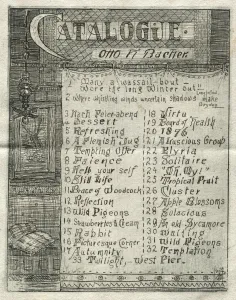 CATALOGUE
Otto H. Bacher
1 "Many a wassail-bout
Wore the long Winter Out"
2 Where whistling winds uncertain shadows make
3 Nach Feierabend
4 Dessert
5 Refreshing
6 A Flemish Jug
7 Tempting Offer
8 Faience
9 Help your self
10 Still Life
11 Brace of Woodcock
12 Reflection
13 Wild Pigeons
14 Strawberries & Cream
15 Rabbit
16 Picturesque Corner
17 Autumnity
18 Virtu
19 Board of Health
20 1876
21 Audacious Group
22 Elyria
23 Solitaire
24 "Oh, My!"
25 Tropical Fruit
26 Cluster
27 Apple Blossoms
28 Salacious
29 An old Sycamore
30 Waiting
31 Wild Pigeons
32 Temptation
33 Twilight, West Pier.